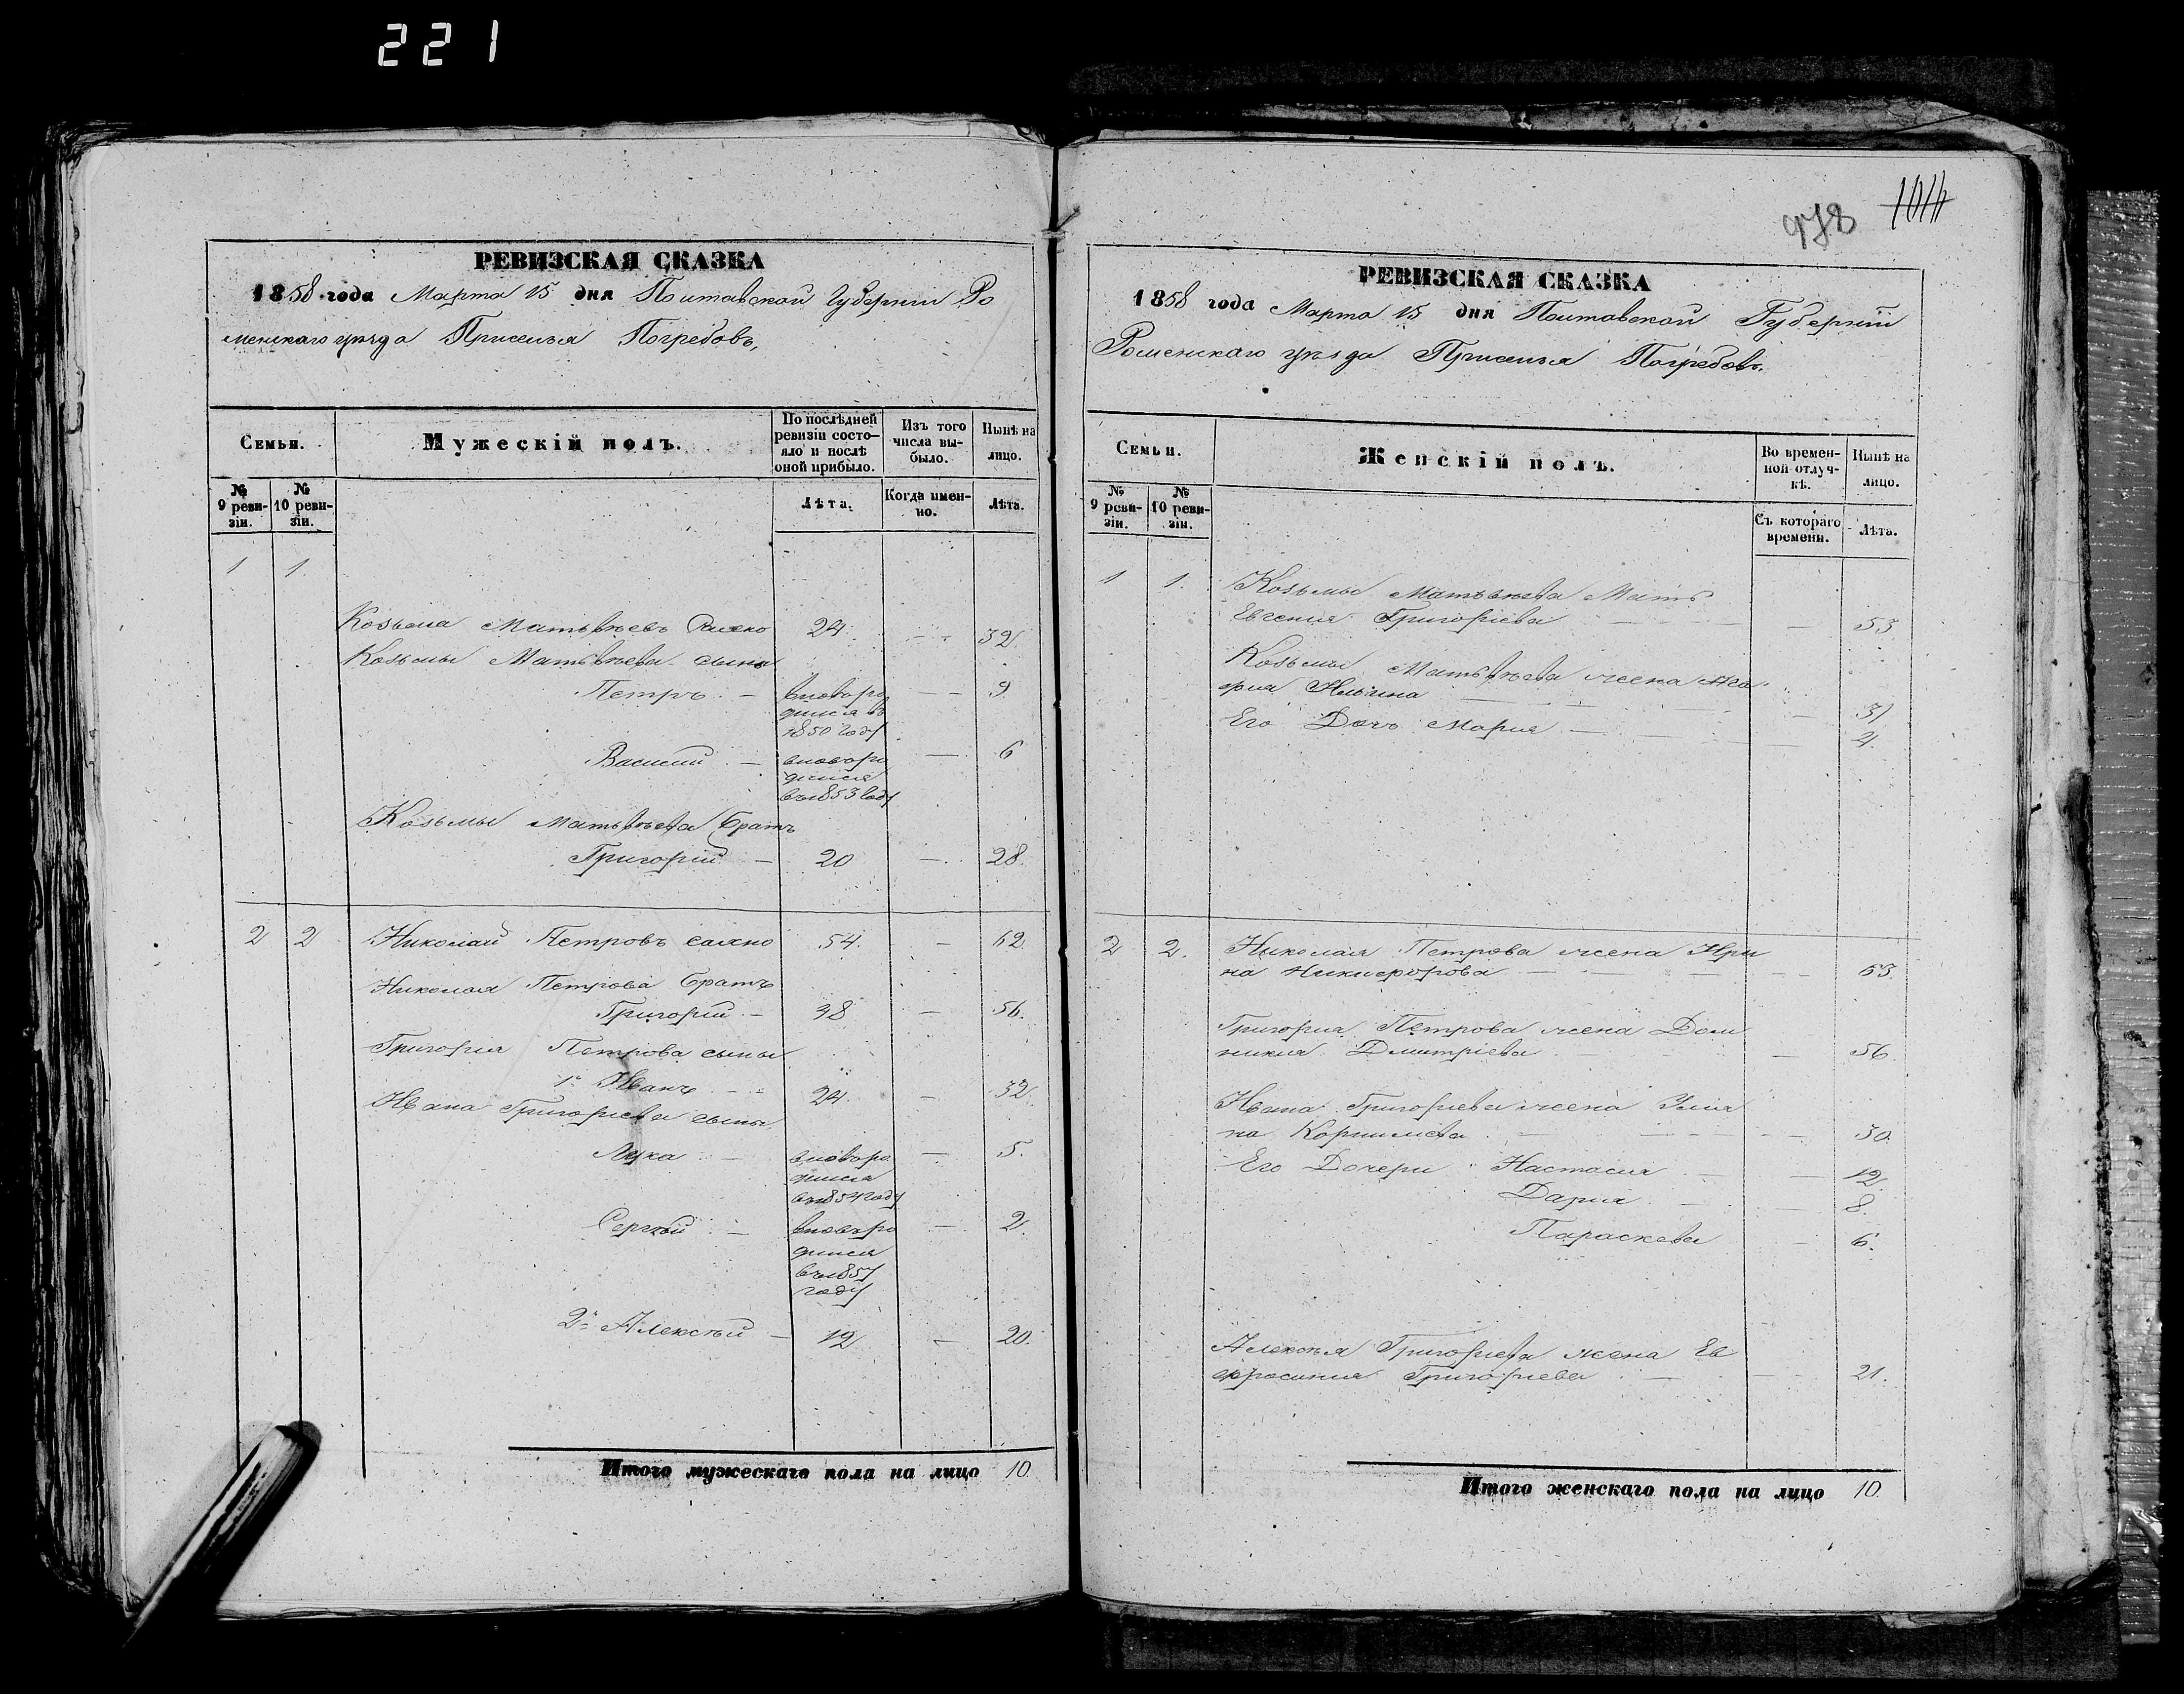 221
РЕВИЗСКАЯ СКАЗКА
1858 года Марта 15 дня Полтавской Губерніи Ро
менскаго уезда Приселья Погребовъ,
Семьи.
Мужескій полъ.
По послѣдней
ревизіи состо-
яло и послѣ
оной прибыло.
Изъ того
числа вы-
было.
Нынѣ на
лицо.
№
9 реви-
зіи.
№
10 реви-
зіи.
Лѣта.
Когда имен-
но.
Лѣта.
1 1.
Козьма Матвѣевъ 24 32
Козьмы Матвѣева сыны
Петръ 9
вновь ро
дился въ
1850 году
Василий 6
вновь ро
дился
въ 1853 году
Козьмы Матвѣева братъ
Григорій 20 28.
2 2 Николай Петровъ 54. 62
Николая Петрова братъ
Григорій 48 56.
Григорія Петрова сыны
1й Иванъ 24. 32
Ивана Григорьева сыны,
Лука 5.
вновь ро
дился
въ 1854 году
Сергѣй 2
вновь ро
дился
въ 1857
году
2й Алексѣй 12 20.
Итого мужескаго пола на лицо 10
978 1016
РЕВИЗСКАЯ СКАЗКА
1858 года Марта 15 дня Полтавской Губерніи
Роменскаго уѣзда Приселья Погребовъ.
Семьи.
Женскій полъ.
Во времен-
ной отлуч-
кѣ.
Нынѣ на
лицо.
№
9 реви-
зіи.
№
10 реви-
зіи.
Съ котораго
времени.
Лѣта.
1 1. Козьмы Матвѣева Мать
Евгения Григоріева 53
Козьмы Матвѣева жена Ма
рия Ильина 31
Его Дочь Мария 4.
2 2. Николая Петрова жена Ири
на Никифорова 63
Григория Петрова жена Дом
никия Дмитріева 56.
Ивана Григорьева жена Улия
на Корнилева 30.
Его Дочери Настасия 12
Дария 8.
Параскева 6.
Алексѣя Григорьева жена Ев
фросиния Григорьева 21.
Итого женскаго пола на лицо 10.